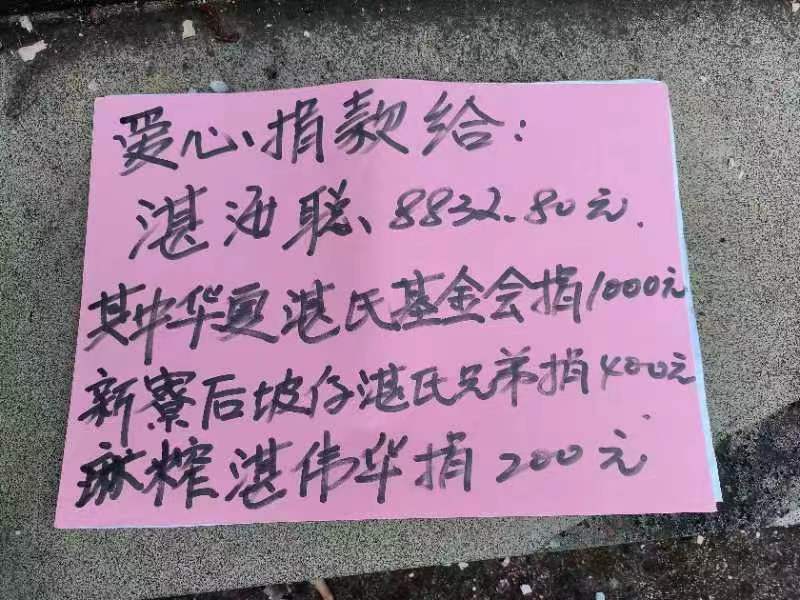 爱心捐款给：
湛海聪、8832.80元.
其中华夏湛氏基金会捐1000元
新寮后坡仔湛氏兄弟捐400元
麻榨湛伟华捐200元